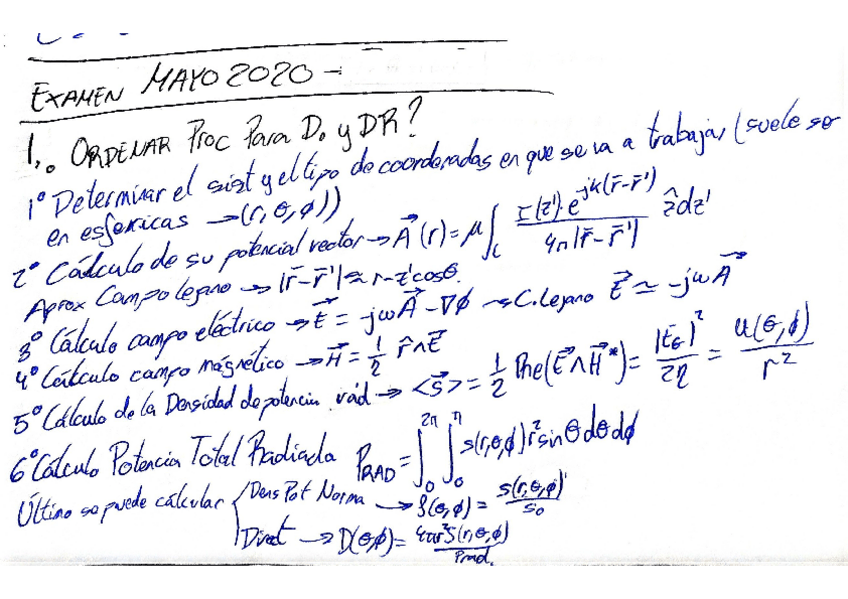 EXAMEN MAYO 2020 -
1.. ORDENAR Proc Para D. y DR?
1º Determinar el sist y el tipo de coordenadas en que se va a trabajar (suele ser
en esfericas → (r, θ, ϕ))
2º Cálculo de su potencial vector → A⃗ (r) = μ ∫_c I(z')·e^{-jk(r̄-r̄')} / 4π|r̄-r̄'| ẑdz'
Aprox Campo lejano → |r̄-r̄'| ≈ r-z'cosθ.
3º Cálculo campo eléctrico → E⃗ = -jωA⃗ - ∇ϕ → C.Lejano E⃗ ≃ -jωA⃗
4º Cálculo campo mágnético → H⃗ = 1/2 r̂∧E⃗
5º Cálculo de la Densidad de potencia rad → <S⃗> = 1/2 Re(E⃗∧H⃗*) = |E_θ|²/2η = u(θ,ϕ)/r²
6º Cálculo Potencia Total Radiada P_RAD = ∫_0^{2π} ∫_0^π s(r,θ,ϕ)r²sinθdθdϕ
Último se puede cálcular Dens Pot Norma → S(θ,ϕ) = s(r,θ,ϕ)/s_0
Direct → D(θ,ϕ) = 4πr²S(r,θ,ϕ)/Prad.